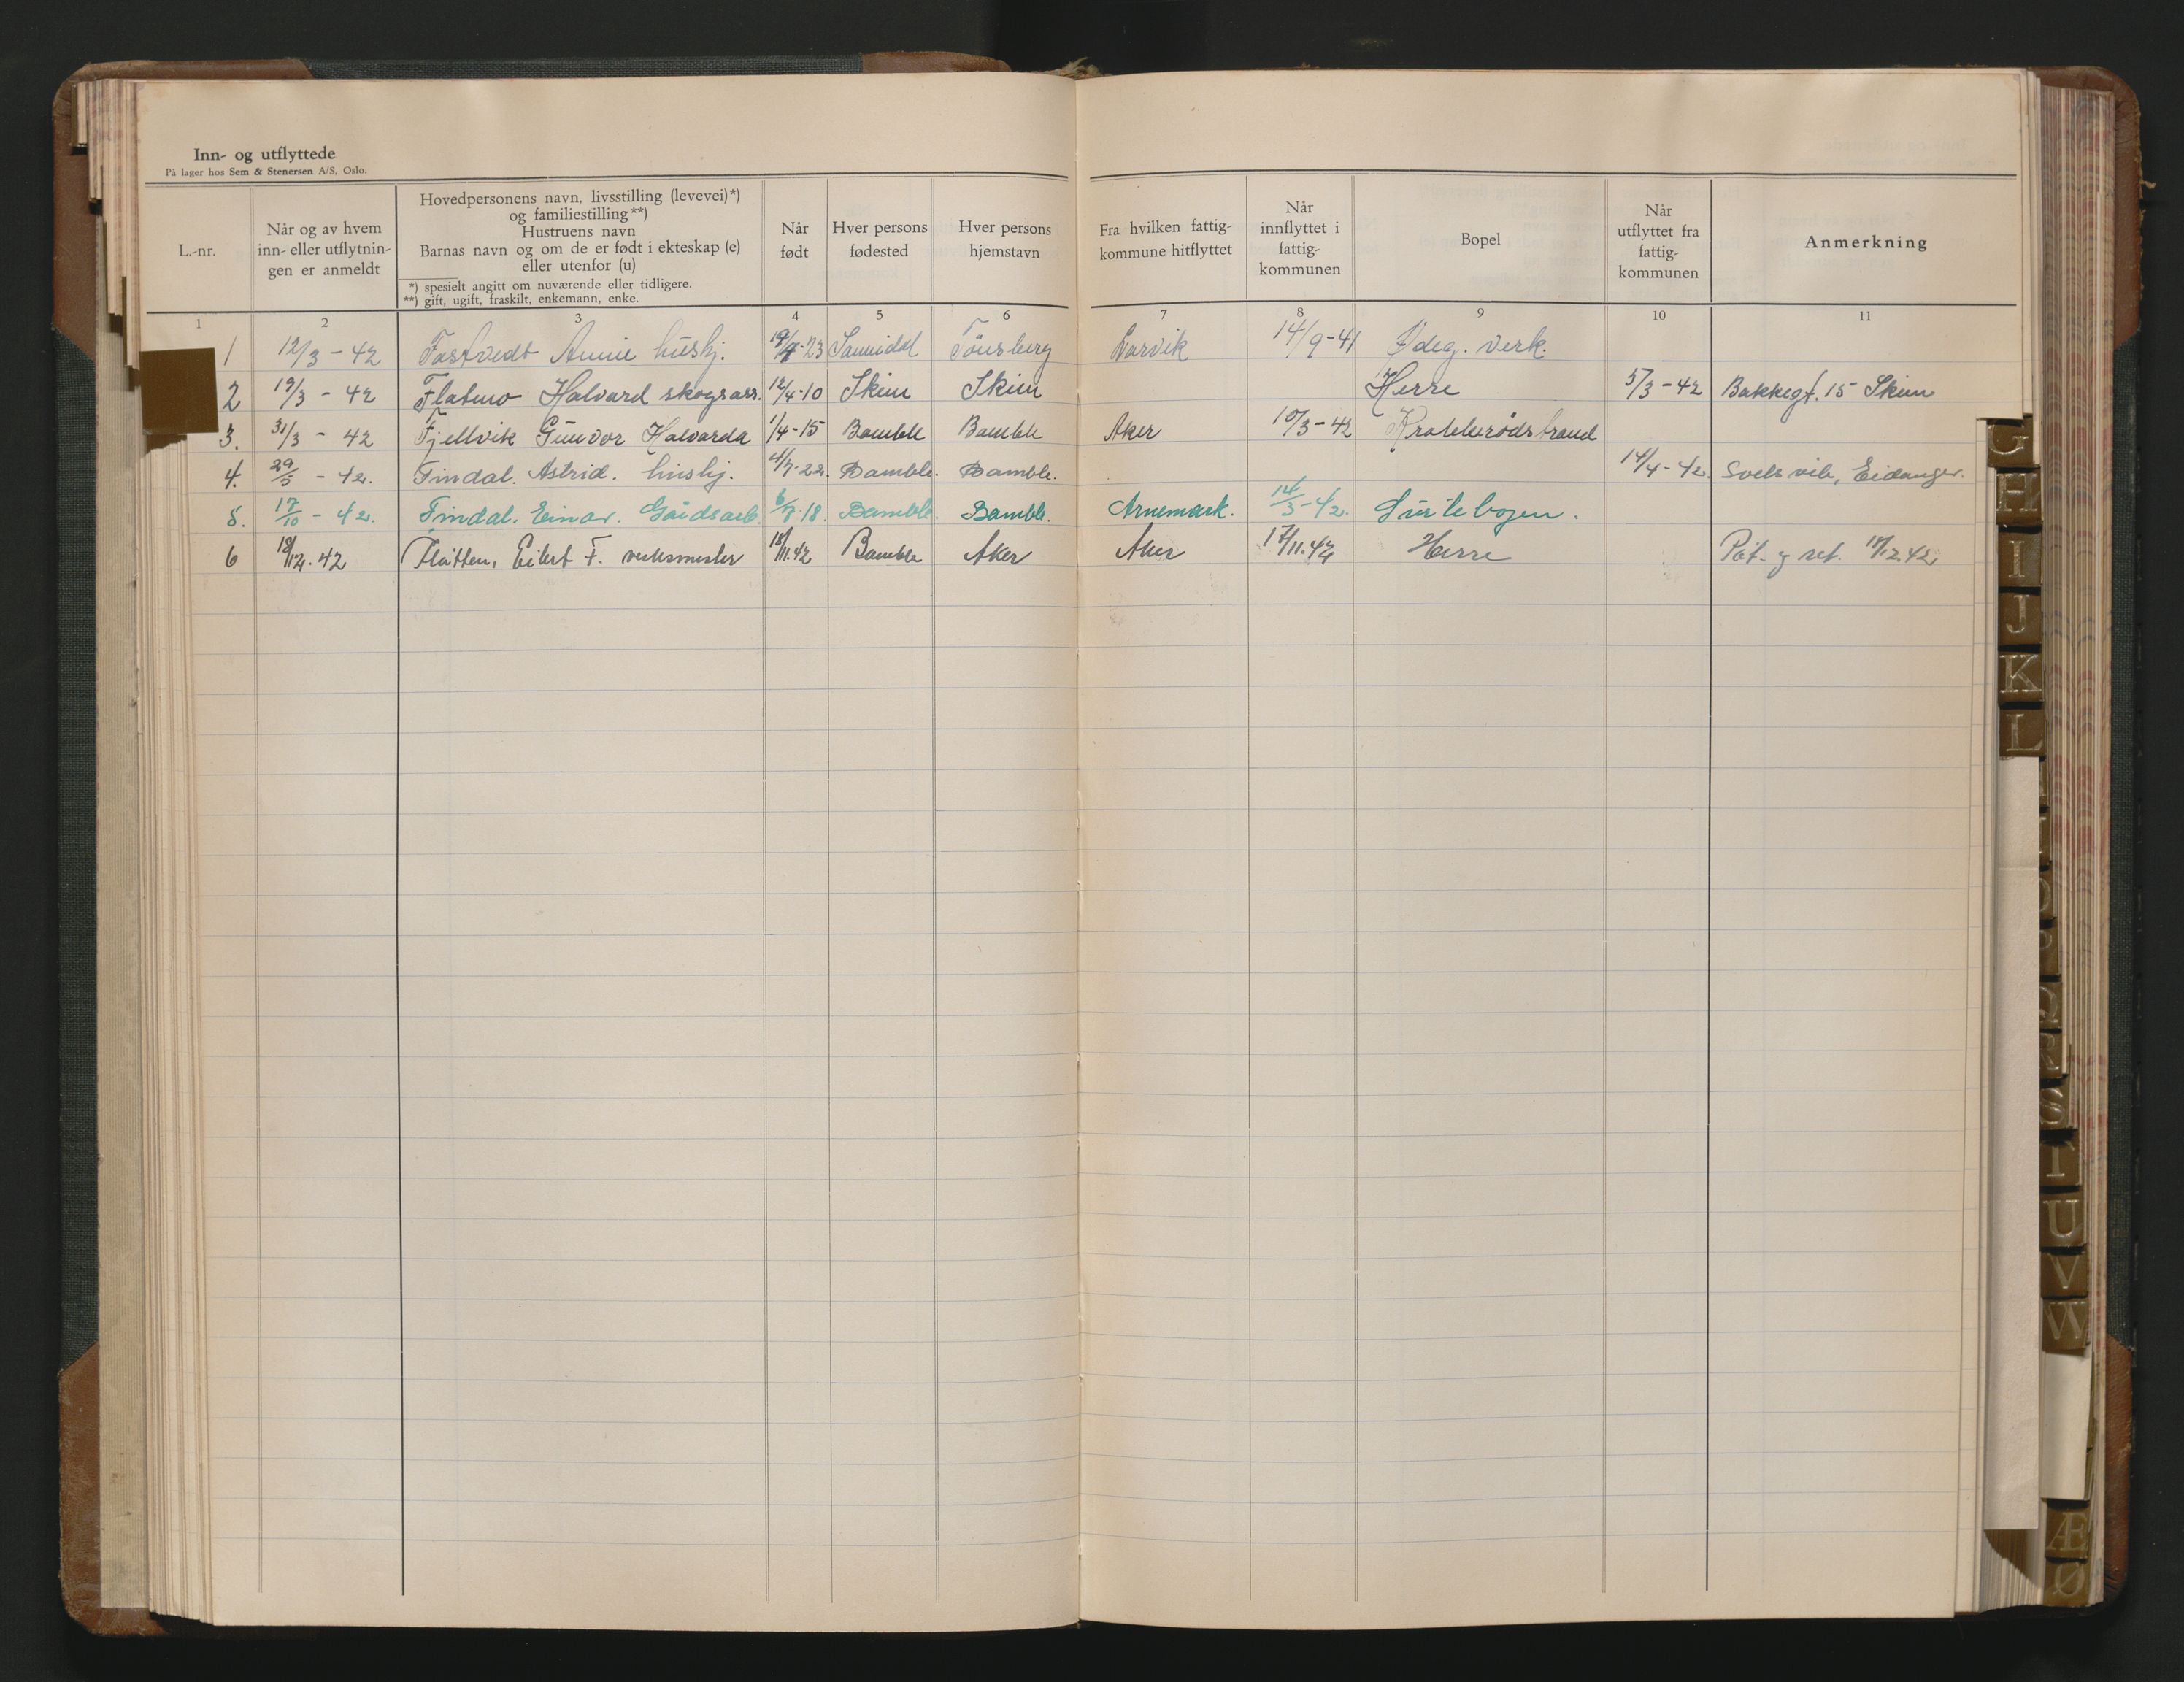 Inn- og utflyttede
På lager hos Sem & Stenersen A/S, Oslo.
L.-nr.
Når og av hvem
inn- eller utflytnin-
gen er anmeldt
Hovedpersonens navn, livsstilling (levevei)*)
og familiestilling**)
Hustruens navn
Barnas navn og om de er født i ekteskap (e)
eller utenfor (u)
*) spesielt angitt om nuværende eller tidligere.
**) gift, ugift, fraskilt, enkemann, enke.
Når
født
Hver persons
fødested
Hver persons
hjemstavn
Fra hvilken fattig-
kommune hitflyttet
Når
innflyttet i
fattig-
kommunen
Bopel
Når
utflyttet fra
fattig-
kommunen
Anmerkning
1 2 3 4 5 6 7 8 9 10 11
1 12/3 - 42 Fostvedt Annie hushj. Sannidal Tönsberg Larvik 14/9-41 Ødeg. verk.
2 19/3 - 42 Flatmo Halvard skogsarb. 12/4-10 Skien Skien Herre 5/3-42 Bakkegt. 15 Skien
3. 31/3 - 42 Fjellvik Gunvor Halvarda 1/4-15 Bamble Bamble Aker 10/3-42 Krokkerødstrand
4. 29/5 - 42. Findal. Astrid. hushj. 4/7-22. Bamble. Bamble. 14/4-42. Eidanger.
5. 17/10 - 42. Findal. Einar. Gårdsarb. 6/8-18. Bamble. Bamble. Arnemark. 14/3-42. Surtebogen.
6 18/12.42 Flåtten, Eilert F. verksmester 18/11.42 Bamble Aker Aker 17/11.42 Herre
G
H
I
J
K
L
S
T
U
V
W
Æ
Ø